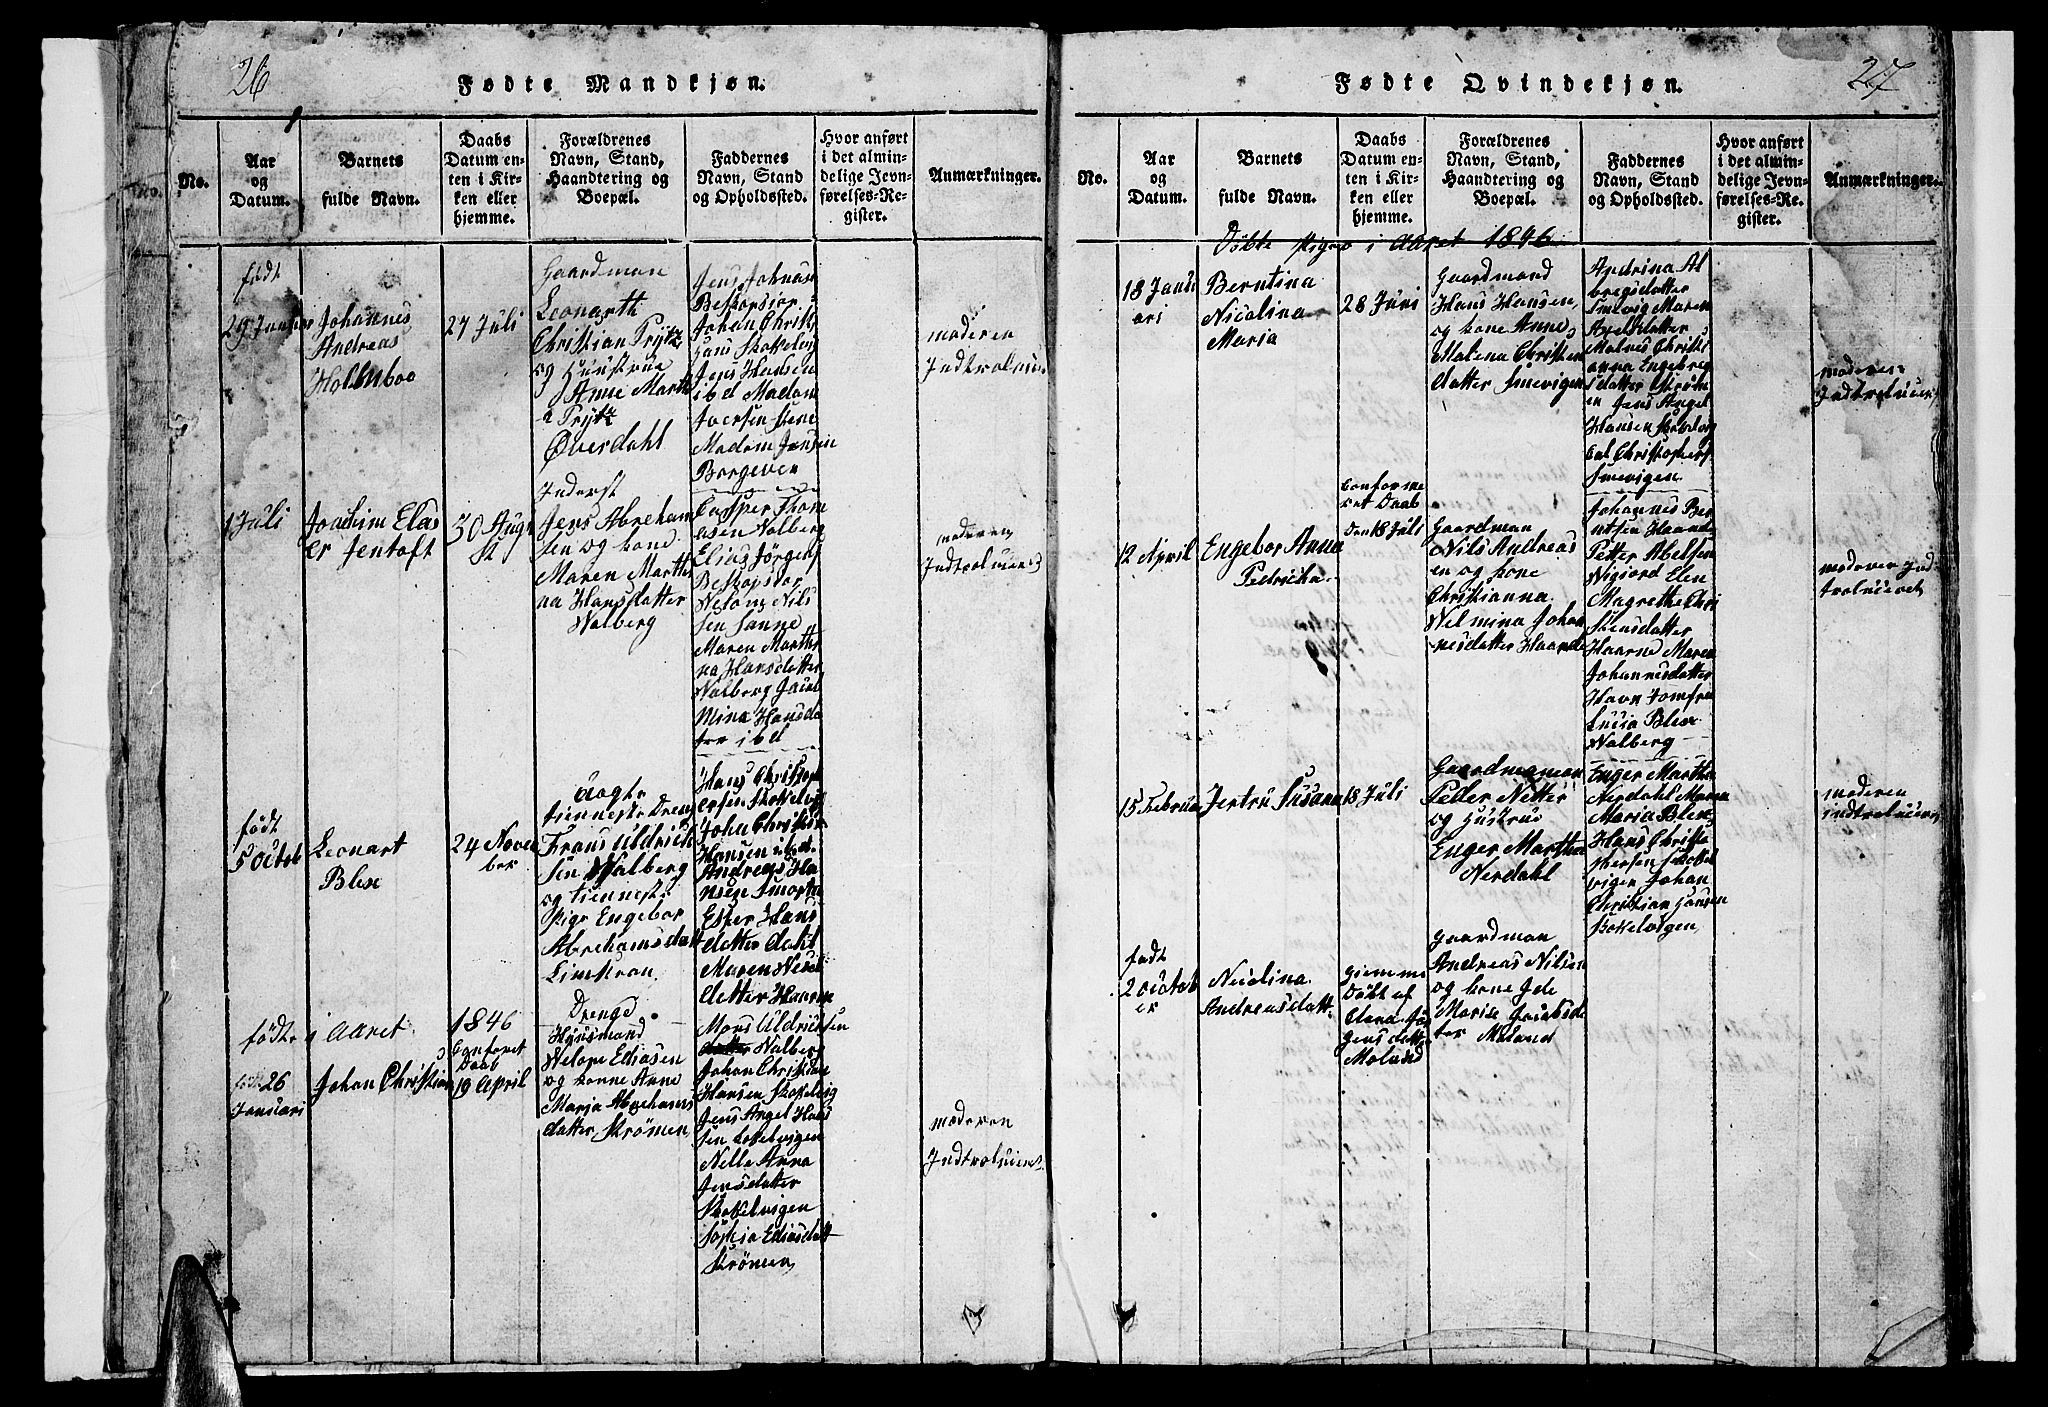 26
Fødte Mandkjøn.
No.
Aar
og
Datum.
Barnets
fulde Navn.
Daabs
Datum en-
ten i Kir-
ken eller
hjemme.
Forældrenes
Navn, Stand,
Haandtering og
Boepæl.
Faddernes
Navn, Stand
og Opholdssted.
Hvor anført
i det almin-
delige Jevn-
førelses-Re-
gister.
Anmærkninger.
født
29 Januar
Johannes
Andreas
Holmboo
27 Juli
Gaardman
Leonarth
Christian Prytz
og Huustrue
Anne Marth
a Prytz
Øverdahl
Jens Johnan
Johan Christ
Hans Skokelvig
Jens Hansen
ibd Madam
Madam Jensen
Borgeven
moderen
1 Juli
Joachim Elas
er Jentoft
30 Aug
st
Inderst
Jens Abreham
sen og kone
Maren Marth
na Hansdatter
Valberg
Casper Thom
asen Valberg
Elias Jørgens
Nils
sen Sanne
Maren Marth
na Hansdatter
Valberg Jacob
Mina Hansda
tter ibd
moderen
født
5 Octob
Leonart
Blix
24 Nove
ber
tienneste Dreng
Frans Uldrich
sen Valberg
og tienneste
Pige Engebor
Abrehamsdatt
Limstran
Hans Christoph
ersen Skokelvig
Johan Christian
Hansen ibd
Andreas Ha
nsen Smorten
Ester Hans
datter Dahl
Maren Nesel
datter Haarn
født i Aaret 1846
Drenge
født 26
Januari
Johan Christian
Conferet
Daab
19 April
Huusmand
Nelope Eliasen
og konne Anne
Maria Abrehams
datter Strømen
Mons Uldricksen
Valberg
Johan Christian
Hansen Skokelvig
Jens Angel Han
sen Sokelvigen
Nelle Anna
Jensdatter
Skokelvigen
Sophia Eliasdatt
Strømen
moderen
27
Fødte Qvindekjøn.
No.
Aar
og
Datum.
Barnets
fulde Navn.
Daabs
Datum en-
ten i Kir-
ken eller
hjemme.
Forældrenes
Navn, Stand,
Haandtering og
Boepæl.
Faddernes
Navn, Stand
og Opholdssted.
Hvor anført
i det almin-
delige Jevn-
førelses-Re-
gister.
Anmærkninger.
Døbte piger i Aaret 1846
18 Janu
ari
Berntina
Nicolina
Maria
28 Juni
Gaardmand
Hans Hansen
og kone Anne
Malena Christen
datter Smevigen
Andrina Al
bregsdatter
Smevig Maren
Axelsdatter
Malnes Christi
anna Engebreg
sdatter Strøm
en Jens Angel
Hansen Skokelvig
Carl Christophers
Smevigen
moderen
12 April
Engebor Anna
Pedricha
Conforme
ret Daab
Den 18 Juli
Gaardman
Nils Andreas
en og kone
Christianna
Velmina Johan
nesdatter Haande
Johannes Ber
ntsen Haand
Petter Abelsen
Vigiord Elen
Magrethe Chri
stensdatter
Haarne Maren
Johannesdatter
Havn Jomfru
Lucia Blix
Valberg
moderen Ind
15 Februar
Jertru Susana
18 Juli
Gaardmanman
Peder Netter
og Hustrue
Enger Martha
Nerdahl
Enger Martha
Nerdahl Maren
Maria Blix
Hans Christo
phersen Skokel
vigen Johan
Christian Hansen
Skokelvigen
moderen
født
2 Octob
er
Nicolina
Andreasdatt
Giemme
Døbt af
Clara Jør
gensdatter
Moland
Gaardman
Andreas Nilsen
og kone Gde
Marie Jacobsda
tter Moland